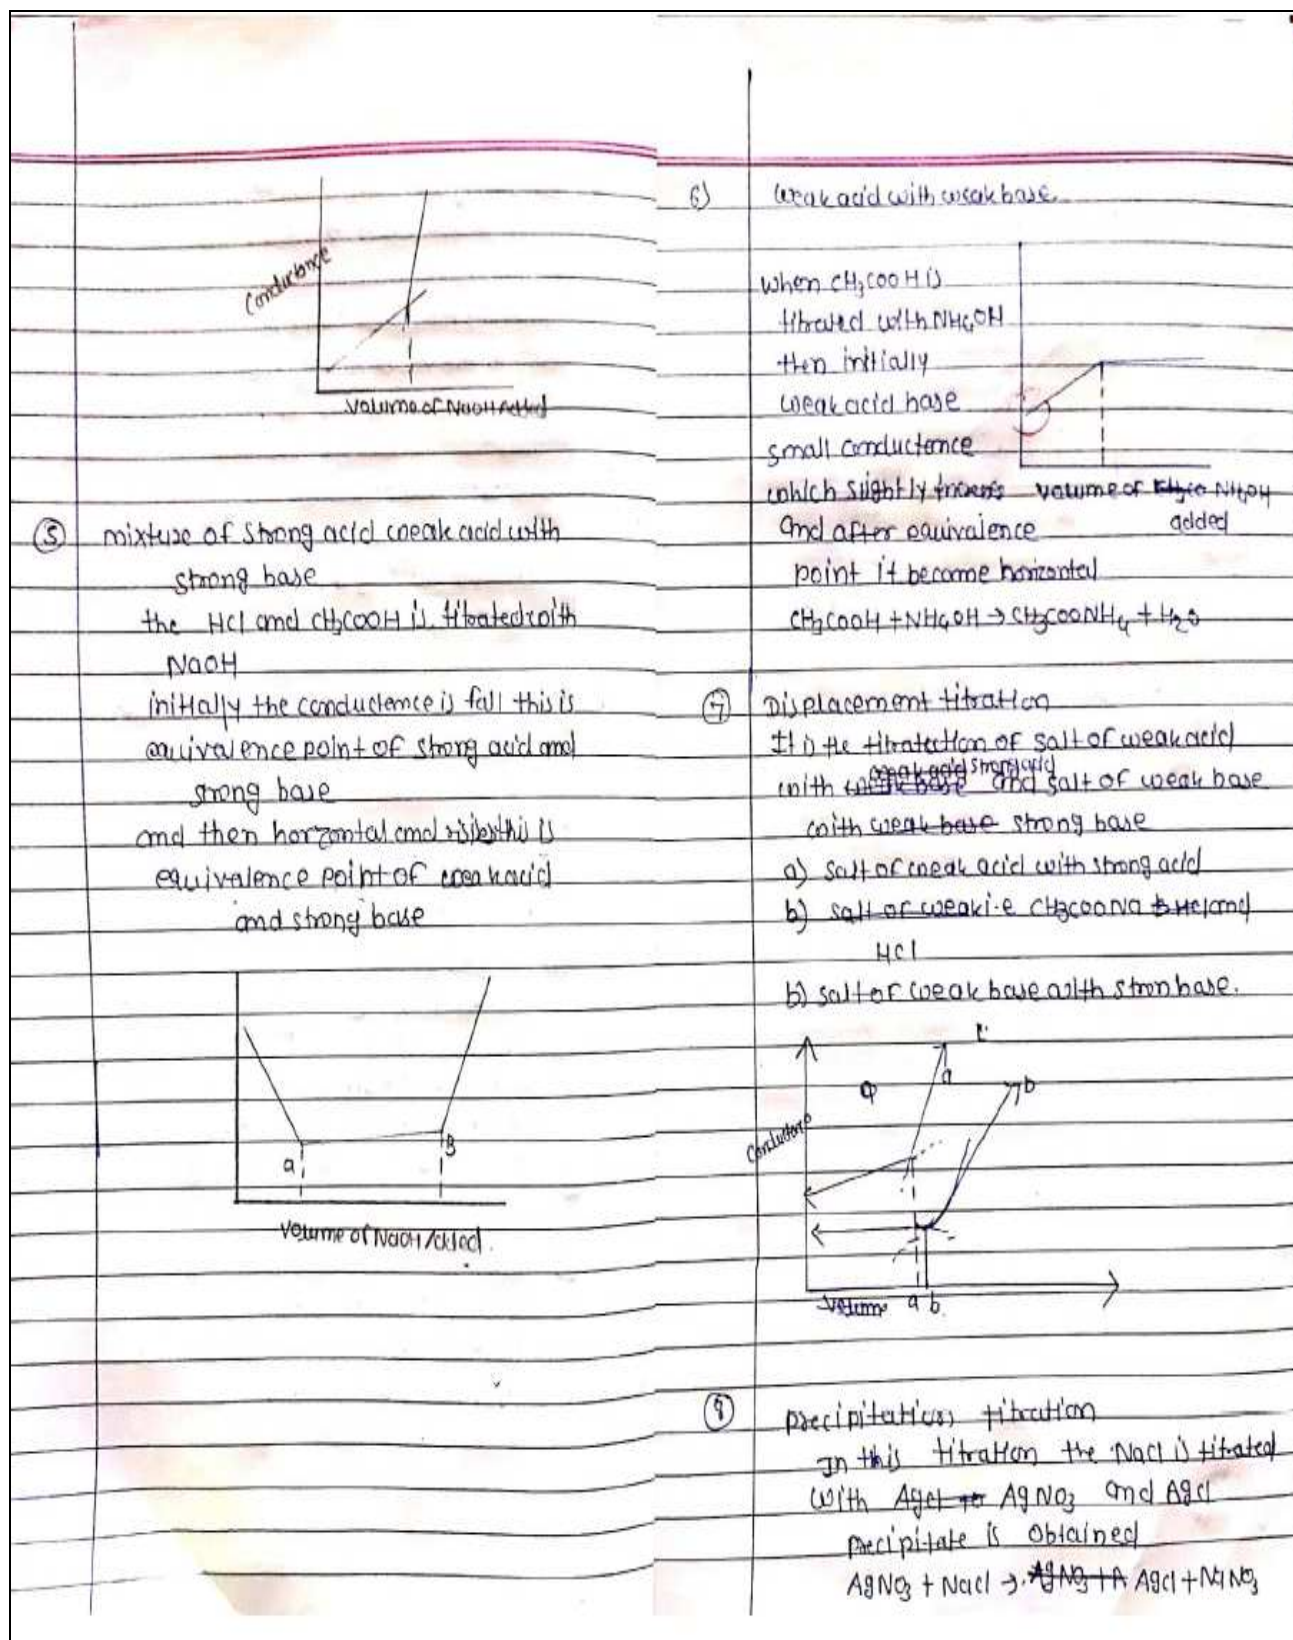 Conductance
Volume of NaOH Added
⑤ mixture of strong acid weak acid with
strong base
the HCl and CH3COOH is titrated with
NaOH
initially the conductence is fall this is
equivalence point of strong acid and
strong base
and then horzontal and this is
equivalence point of weak acid
and strong base
a
B
Volume of NaOH Added.
6) weak acid with weak base.
When CH3COOH is
titrated with NH4OH
then initially
weak acid base
small conductence
which slightly
and after equivalence
point it become horizontal
CH3COOH + NH4OH → CH3COONH4 + H2O
volume of NH4OH
added
⑦ Displacement titration
It is the titratection of salt of weak acid
with strong acid and salt of weak base
with weak base strong base
a) salt of weak acid with strong acid
b) salt of weak i.e CH3COONa HCl and
HCl
b) salt of weak base with stron base.
a
b
Volume a b.
⑧ precipitation titration
In this titration the NaCl is titrated
with AgCl AgNO3 and AgCl
precipitate is obtained
AgNO3 + NaCl → AgNO3 + A AgCl + NaNO3